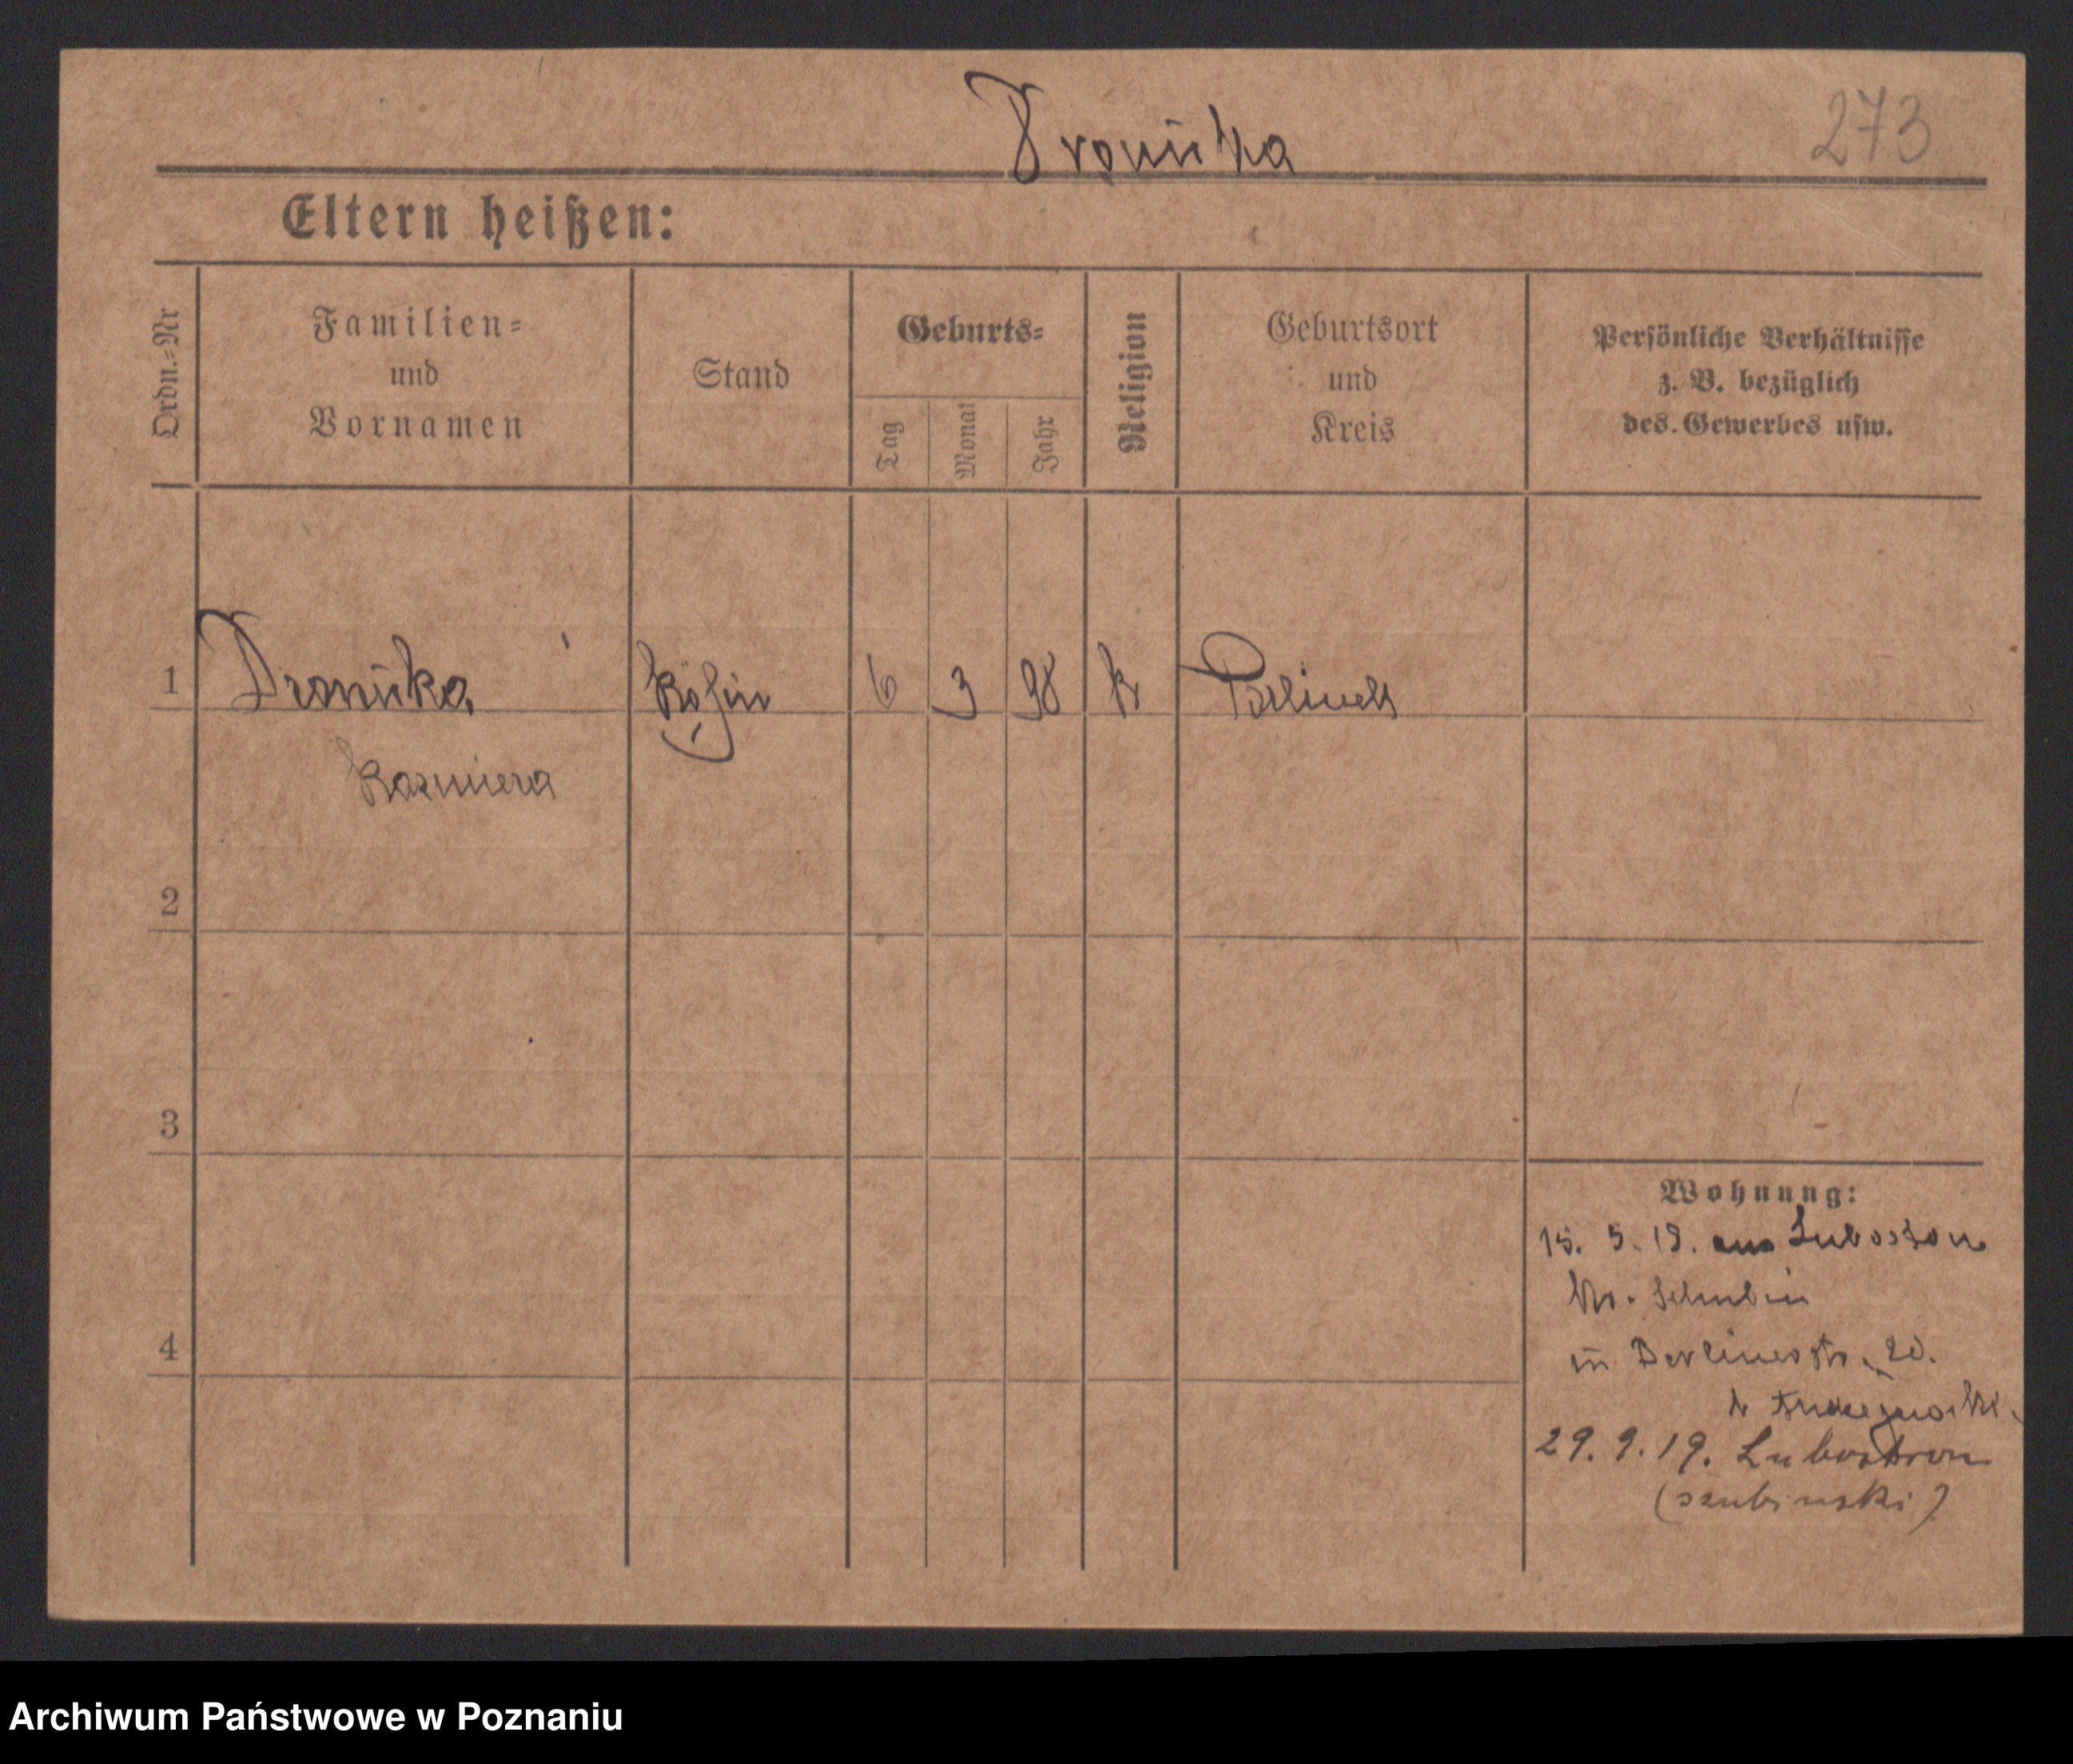 Dronika
273
Eltern heißen:
Ordn.=Nr
Familien=
und
Vornamen
Stand
Geburts=
Tag
Monat
Jahr
Religion
Geburtsort
und
Kreis
Persönliche Verhältnisse
z. B. bezüglich
des. Gewerbes usw.
1 Dronika Köchin 6 3 98 k
Kazmiera
2
3
4
Wohnung:
15. 5. 19. aus Lubostron
Kr. Schubin
in Berlinerstr. 20.
29. 9. 19. Lubostron
(szubinski)
Archiwum Państwowe w Poznaniu